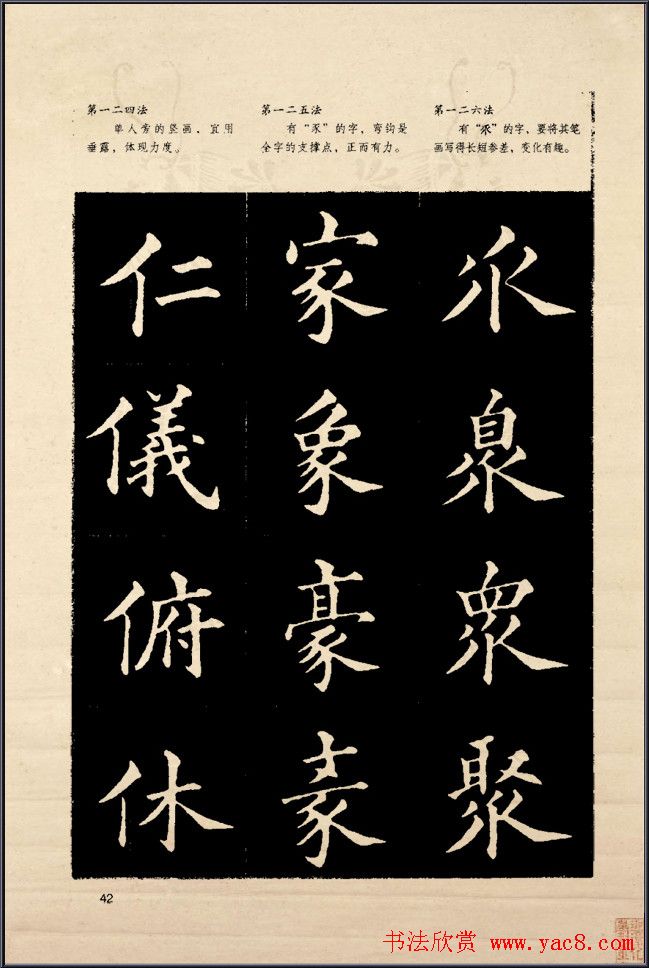 第一二四法
单人旁的竖画、宜用
垂露，体现力度。
第一二五法
有“豕”的字，弯钩是
全字的支撑点，正而有力。
第一二六法
有“乑”的字，要将其笔
画写得长短参差，变化有趣。
仁
儀
俯
休
家
象
豪
乑
臮
眾
聚
42
书法欣赏 www.yac8.com